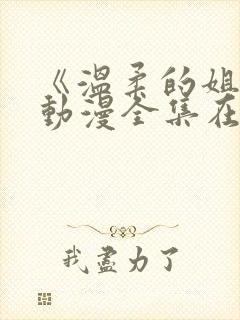 《温柔的姐
动漫全集在
我尽力了